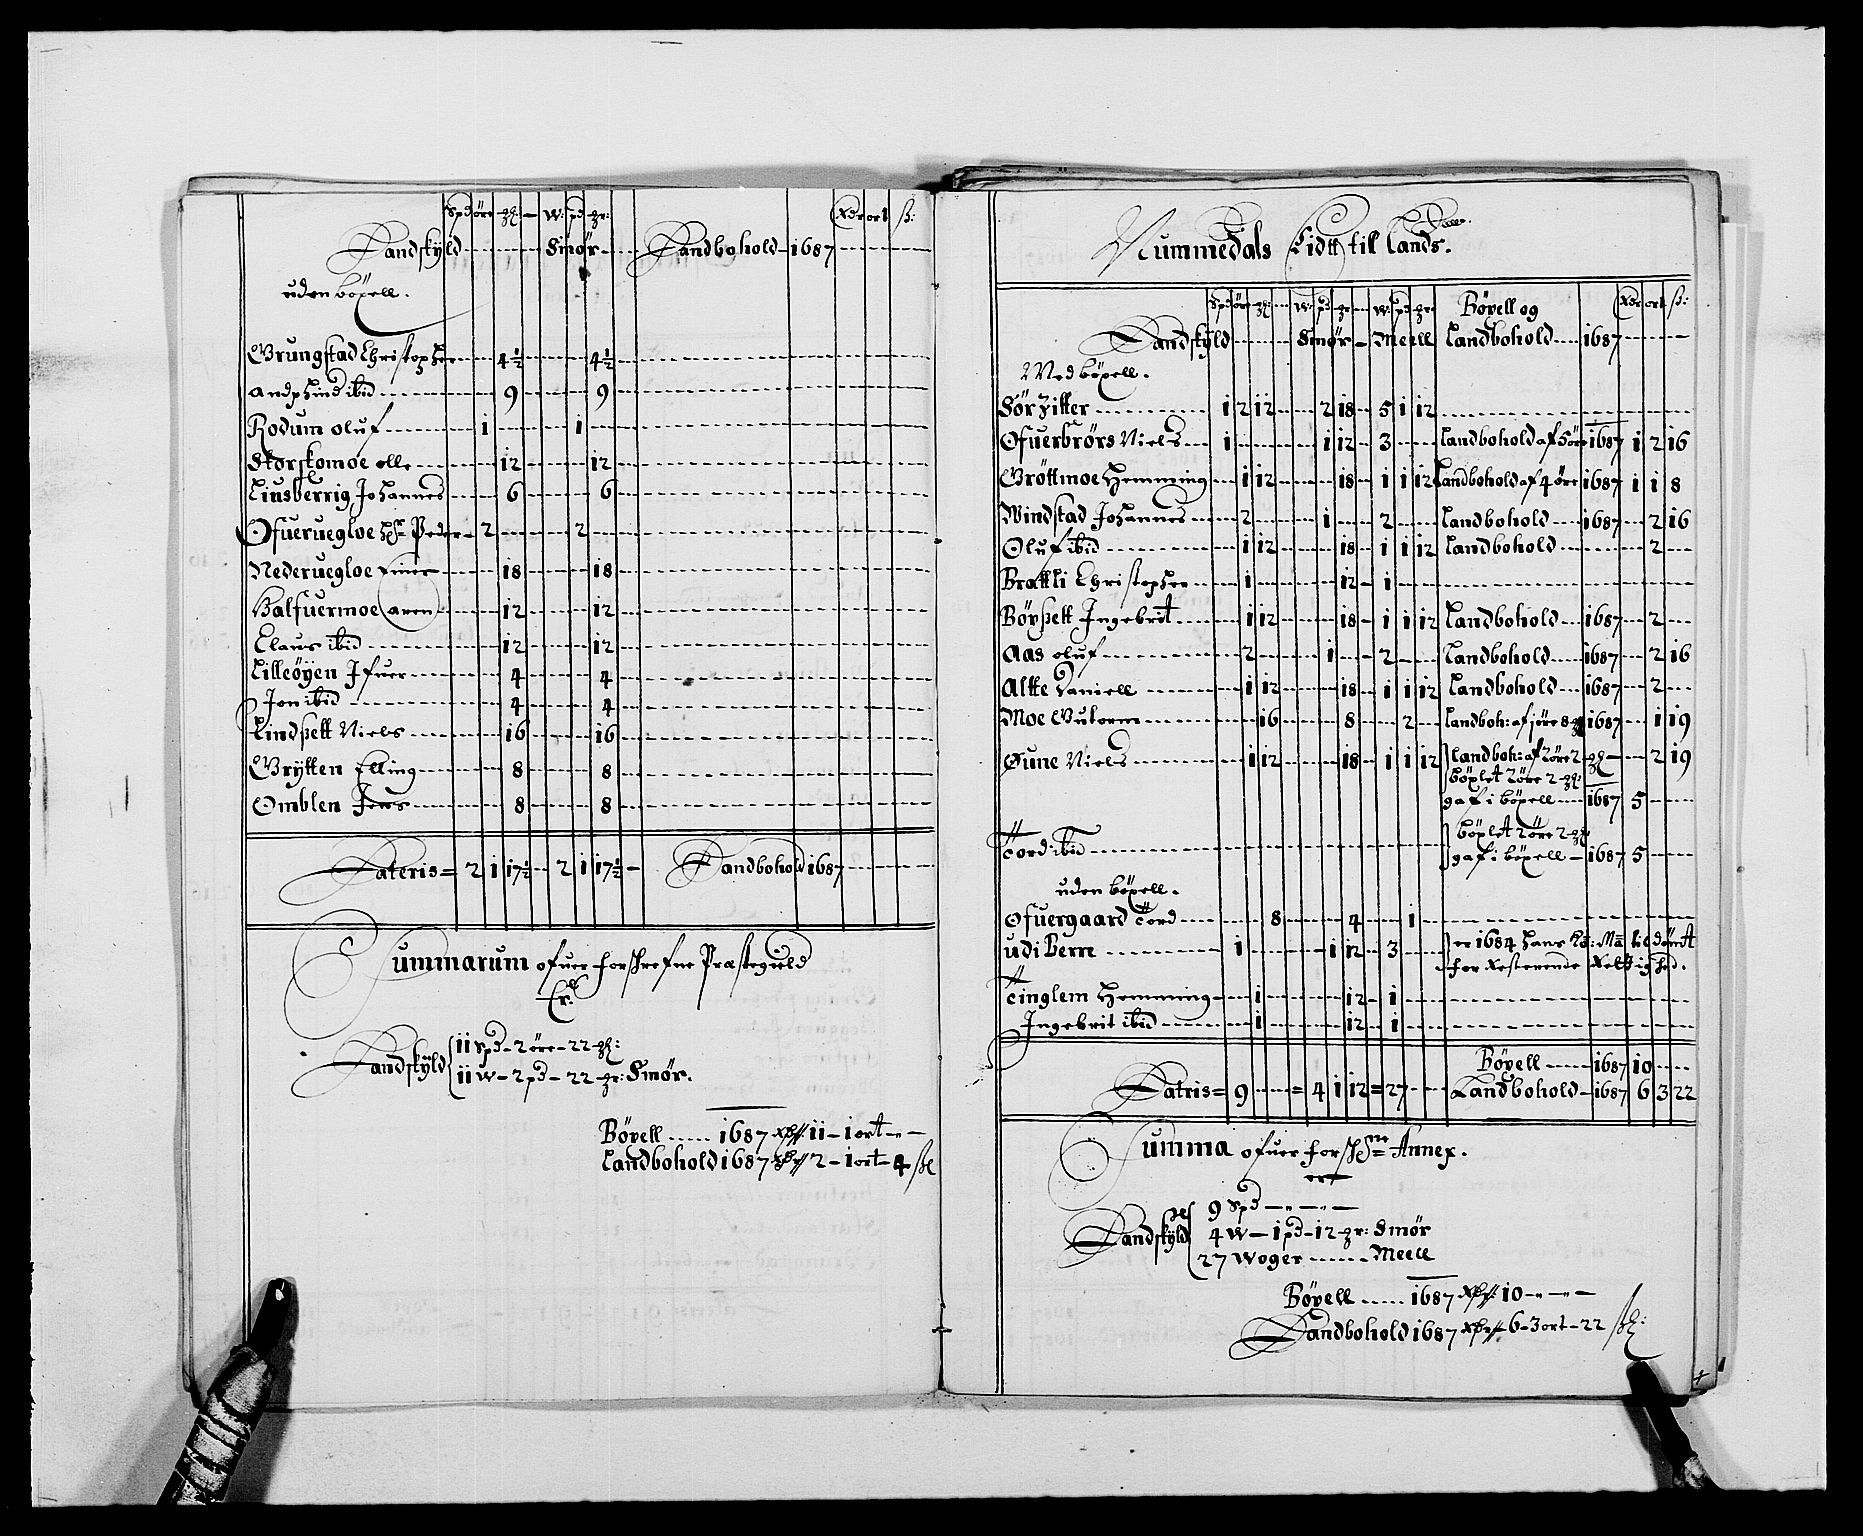 Spd öre gl: — W: pd gr: Rdr ort ß:
Landskyld Smör Landbohold 1687
uden böxell.
Grungstad Christopher 4½ 4½
Andphind ibid 9 9
Rodum oluf 1 1
Storskomoe olle 12 12
Liusberrig Johannes 6 6
Ofueruegloe Peder 2 2
Nederuegloe Einer 18 18
Halfuermoe aren 12 12
Claus ibid 12 12
Lilleöyen Ifuer 4 4
Jon ibid 4 4
Lindßett Niels 16 16
Grytten Elling 8 8
Omblen Jens 8 8
Lateris = 2 1 17½ — 2 1 17½ — Landbohold 1687
Summarum ofuer forschrefne Præstegield
Er.
Landskyld 11 Spd – 2 öre – 22 gl:
11 W – 2 pd – 22 gr: Smör.
Böxell 1687 11 – 1 ort – –
Landbohold 1687 2 – 1 ort – 4 ßl
Nummedals Eidtt till Lands.
Spd öre gl: W: pd gr: W: pd gr: Böxell og Rdr ort ß:
Landskyld Smör – Meell Landbohold 1687
Med böxell.
Sörzitter 1 2 12 2 18 5 1 12
Ofuerbrörs Niels 1 1 12 3 Landbohold af 1687 1 2 16
Gröttmoe Hemming 1 12 18 1 1 12 Landbohold af 4 öre 1687 1 1 8
Windstad Johannes 2 1 2 Landbohold 1687 2 16
Oluf ibid 1 12 18 1 1 12 Landbohold 2
Brattli Christopher 1 12 1
Böyßett Ingebrit 1 12 18 1 1 12 Landbohold 1687 2
Aas oluf 2 1 2 Landbohold 1687 2 16
Altte Daniell 1 12 18 1 1 12 Landbohold 1687 2
Moe Gutorm 16 8 2 Landboh: af 1 öre 8 gl 1687 1 19
Öune Niels 1 12 18 1 1 12 Landboh: af 2 öre 2 gl 2 19
böxlet 2 öre 2 gl:
gaf i böxell 1687 5
Tord ibid böxlet 2 öre 2 gl
gaf i böxell – 1687 5
uden böxell.
Ofuergaard Tord 8 4 1
udi Berre 1 1 12 3 er 1684 hans Ko: Ma tildömt
for Resterende Rettighed.
Tinglem Hemming 1 12 1
Ingebrit ibid 1 12 1
Böxell 1687 10
Latris = 9 = 4 1 12 = 27 Landbohold – 1687 6 3 22
Summa ofuer forschne Annex.
er
Landskyld 9 Spd – – –
4 W – 1 pd – 12 gr: Smör
27 Woger Meell
Böxell 1687 10 – – –
Landbohold 1687 6 – 3 ort – 22 ßl: